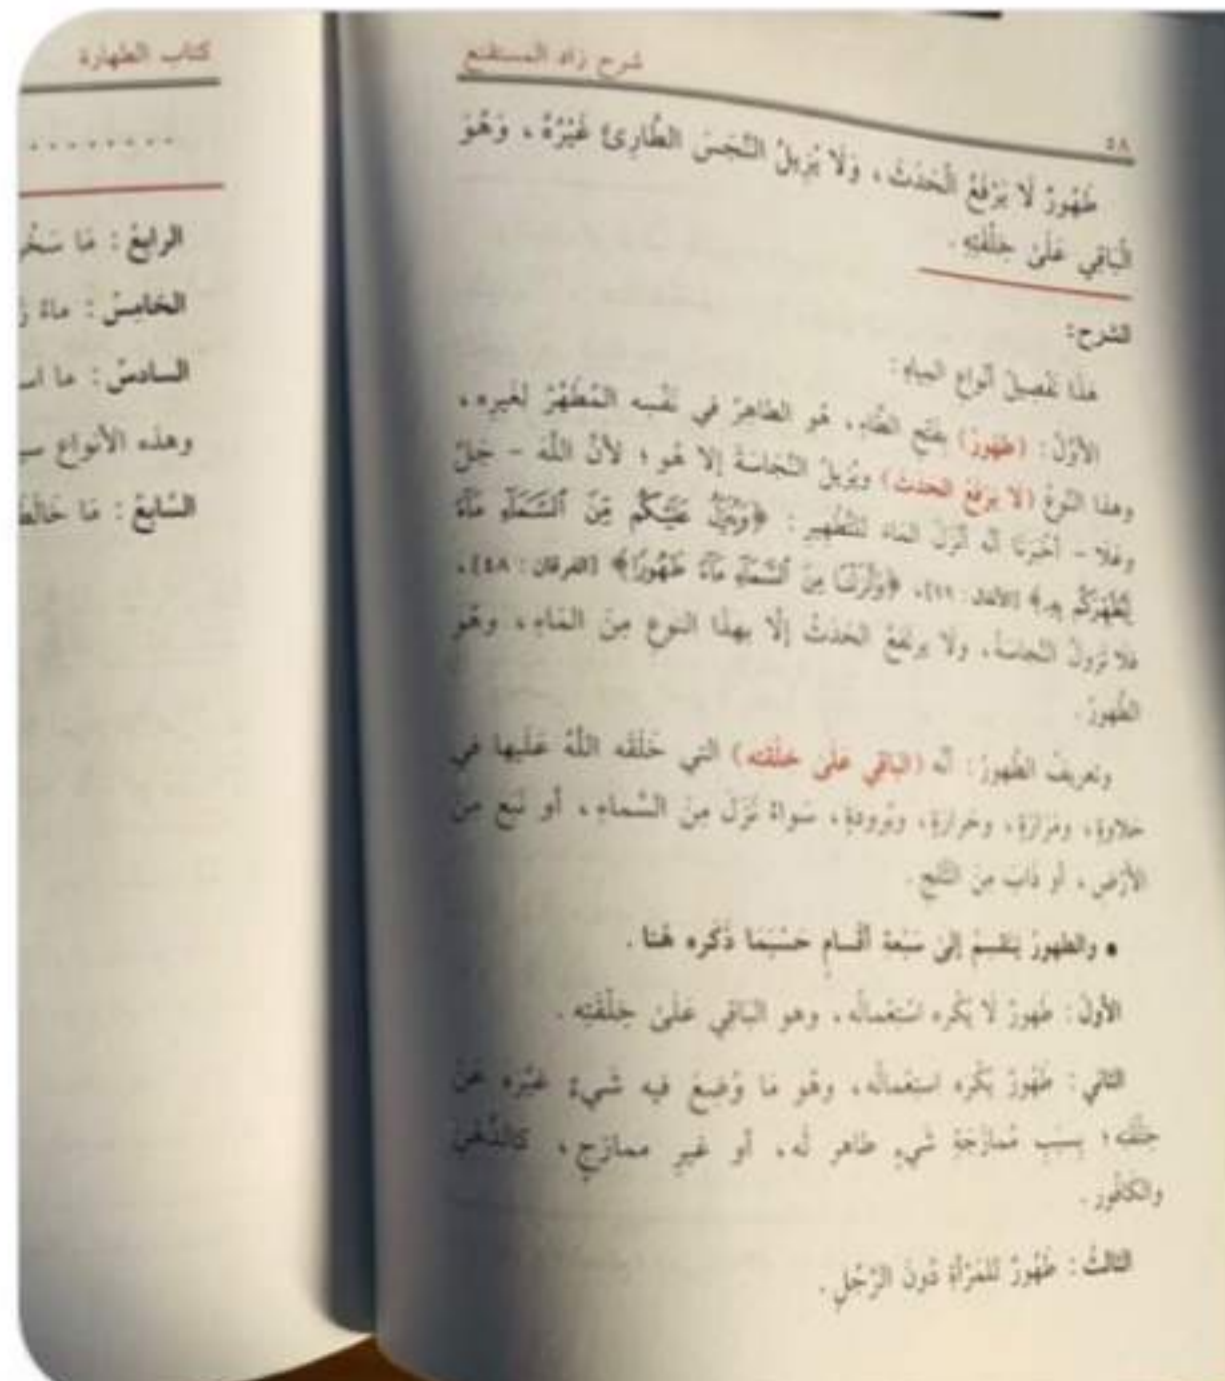 شرح زاد المستقنع
٥٨
طَهُورٌ لَا يَرْفَعُ الْحَدَثَ، وَلَا يُزِيلُ النَّجَسَ الطَّارِئَ غَيْرُهُ، وَهُوَ
الْبَاقِي عَلَىٰ خِلْقَتِهِ.
الشرح:
هَذَا تَفْصِيلُ أَنْوَاعِ المياهِ:
الأوّلُ: (طهورٌ) بفَتْحِ الطَّاءِ، هُو الطاهرُ في نَفْسِه المُطَهِّرُ لغيرِه،
وهذا النَّوعُ (لا يرفعُ الحدثَ) ويُزِيلُ النَّجَاسَةَ إلا هُو؛ لأنَّ اللَّهَ - جَلَّ
وعَلا - أَخْبَرَنا أنه أنْزَلَ الماءَ للتَّطْهِيرِ: ﴿وَيُنَزِّلُ عَلَيْكُم مِّنَ ٱلسَّمَآءِ مَآءً
لِّيُطَهِّرَكُم بِهِۦ﴾ [الأنفال: ١١]، ﴿وَأَنزَلْنَا مِنَ ٱلسَّمَآءِ مَآءً طَهُورًا﴾ [الفرقان: ٤٨]،
فلا تزولُ النَّجاسةُ، ولا يرتَفعُ الحَدثُ إلَّا بهذا النوعِ مِنَ المَاءِ، وهُو
الطَّهورُ.
وتعريفُ الطَّهورِ: أنَّه (الباقي على خلقته) التي خَلَقَه اللَّهُ عَلَيها في
حَلاوةٍ، ومَرَارَةٍ، وحَرارَةٍ، وبُرودةٍ، سَواءٌ نَزَلَ مِنَ السَّماءِ، أو نَبَع مِنَ
الأرْضِ، أو ذَابَ مِنَ الثَّلْجِ.
• والطهورُ يَنْقسمُ إلى سَبْعَة أَقْسامٍ حَسْبَمَا ذَكَره هُنا.
الأولُ: طَهورٌ لَا يُكْره اسْتِعْمالُه، وهو البَاقي عَلَىٰ خِلْقَتِه.
الثاني: طَهُورٌ يُكْره استعْمالُه، وهُو مَا وُضِعَ فيه شَيءٌ غَيَّرَه عَنْ
خِلْقَتِه؛ بِسَبَبِ مُمازَجَةِ شَيءٍ طاهرٍ لَه، أو غيرِ ممازجٍ، كالدُّهْنِ
والكافُور.
الثالثُ: طَهُورٌ للمَرْأةِ دُونَ الرَّجُلِ.
كتاب الطهارة
. . . . . . . . .
الرابعُ: مَا سَخُ
الخامِسُ: ماءُ
السادسُ: ما
وهذه الأنواع
السَّابعُ: مَا خَالَطَ